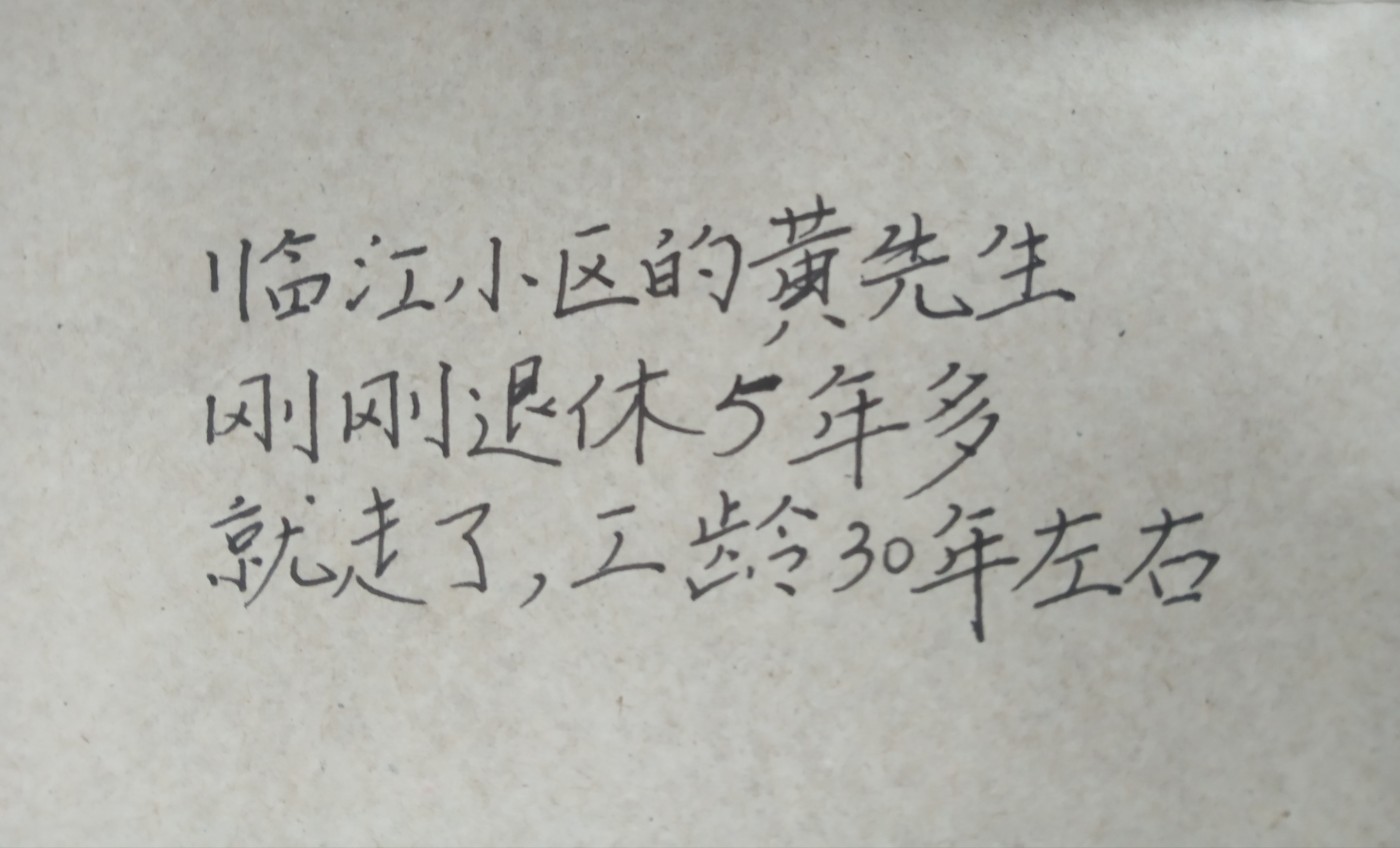 临江小区的黄先生
刚刚退休5年多
就走了,工龄30年左右